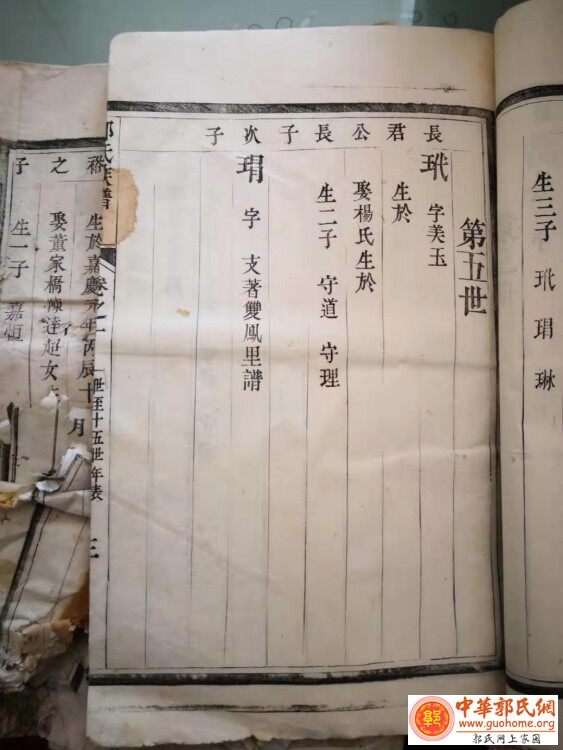 生三子 玳 瑁 琳
第五世
長君公長子
玳 字美玉
生於
娶楊氏生於
生二子 守道 守理
次子
瑁 字 支著雙鳳里譜
郭氏族譜
卷之一
一世至十五世年表
三
裕之子
生於嘉慶元年丙辰十 月
娶董家橋陳達超女
生一子 嘉恆
中華郭氏網
www.guohome.org
郭氏網上家園